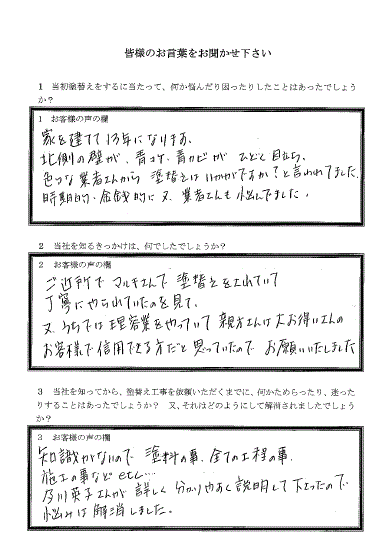 皆様のお言葉をお聞かせ下さい
1　当初塗替えをするに当たって、何か悩んだり困ったりしたことはあったでしょう
か？
1　お客様の声の欄
家を建てて13年になります。
北側の壁が、青コケ、青カビが ひどく目立ち、
色々な業者さんから 塗替えはいかがですか？と言われてました。
時期的・金銭的に又、業者さんも悩んでました。
2　当社を知るきっかけは、何でしたでしょうか？
2　お客様の声の欄
ご近所で マルキさんで 塗替えをされていて
丁寧にやられていたのを見て、
又、うちでは理容業をやっていて 親方さんは大お得いさんの
お客様で信用できる方だと思っていたので お願いいたしました
3　当社を知ってから、塗替え工事を依頼いただくまでに、何かためらったり、迷った
りすることはあったでしょうか？　又、それはどのようにして解消されましたでしょう
か？
3　お客様の声の欄
知識がないので 塗料の事、全ての工程の事、
施工の事など etc…
及川英子さんが 詳しく 分かりやすく説明して下さったので
悩みは解消しました。